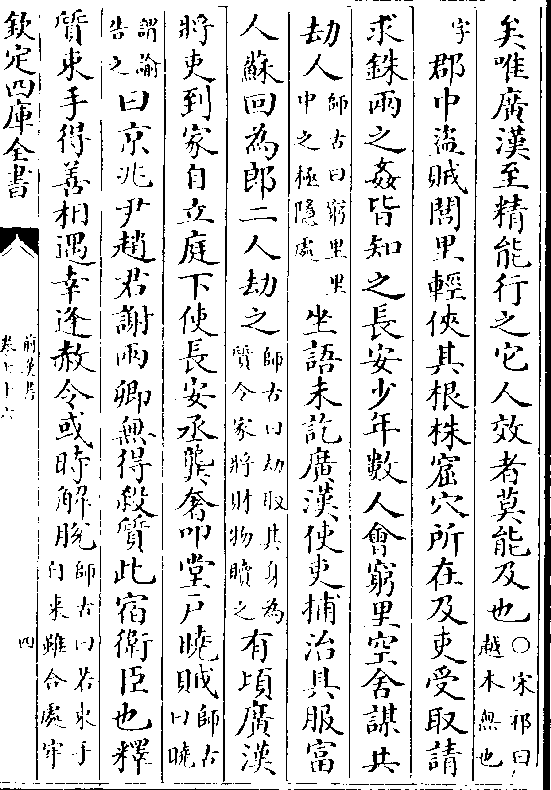 矣唯廣漢至精能行之它人效者莫能及也○宋祁曰越本無也
字郡中盗賊閭里輕俠其根株窟穴所在及吏受取請
求銖兩之姦皆知之長安少年數人會窮里空舍謀共
劫人師古曰窮里里中之極隱處坐語未訖廣漢使吏捕治具服富
人蘇回為郎二人劫之師古曰劫取其身為質令家將財物贖之有頃廣漢
將吏到家自立庭下使長安丞龔奢叩堂户曉賊師古曰曉
謂諭告之曰京兆尹趙君謝兩卿無得殺質此宿衛臣也釋
質束手得善相遇幸逢赦令或時解脱師古曰若束手自來雖合處牢
欽定四庫全書
前漢書
卷七十六
四